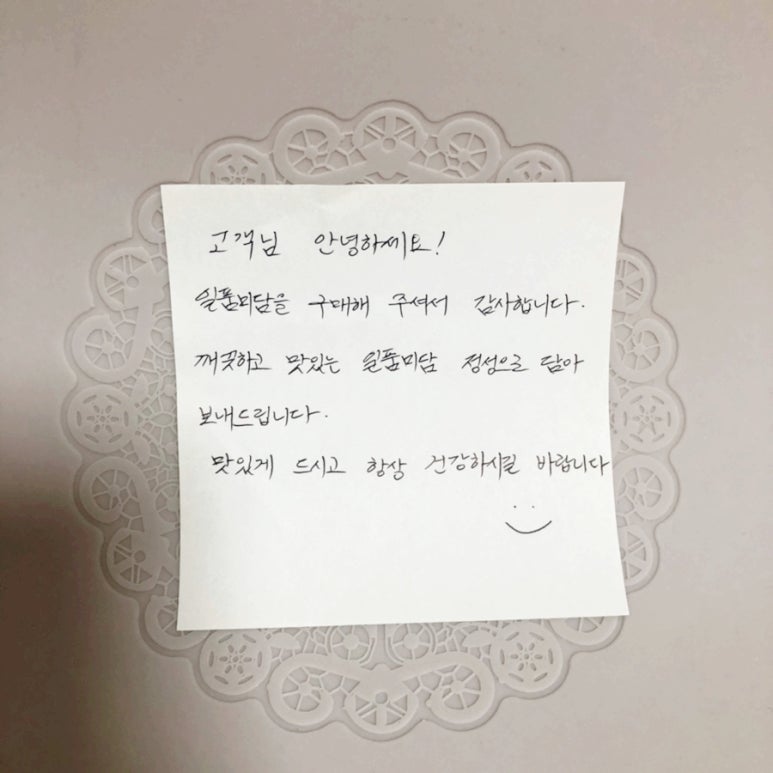 고객님 안녕하세요!
일품미담을 구매해 주셔서 감사합니다.
깨끗하고 맛있는 일품미담 정성으로 담아
보내드립니다.
맛있게 드시고 항상 건강하시길 바랍니다